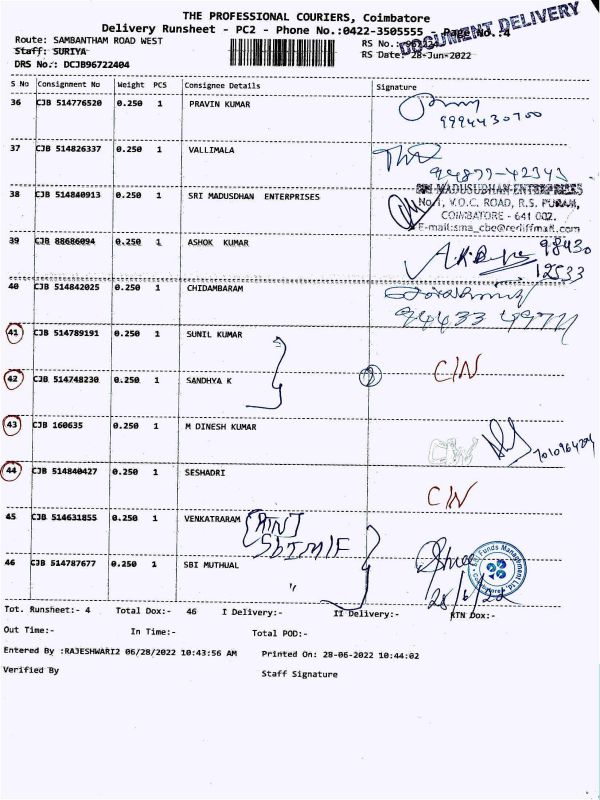 THE PROFESSIONAL COURIERS, Coimbatore
Delivery Runsheet - PC2 - Phone No.:0422-3505555 - Page No.:4
DOCUMENT DELIVERY
Route: SAMBANTHAM ROAD WEST
RS No.:
Staff: SURIYA
RS Date: 28-Jun-2022
DRS No.: DCJB96722404
S No Consignment No Weight PCS Consignee Details Signature
36 CJB 514776520 0.250 1 PRAVIN KUMAR
9994430700
37 CJB 514826337 0.250 1 VALLIMALA
94877-42343
38 CJB 514840913 0.250 1 SRI MADUSDHAN ENTERPRISES
SRI MADUSUDHAN ENTERPRISES
No.1, V.O.C. ROAD, R.S. PURAM,
COIMBATORE - 641 002.
E-mail:sma_cbe@rediffmail.com
39 CJB 88686094 0.250 1 ASHOK KUMAR
98430
12533
40 CJB 514842025 0.250 1 CHIDAMBARAM
94433 49711
41 CJB 514789191 0.250 1 SUNIL KUMAR
42 CJB 514748230 0.250 1 SANDHYA K
C/N
43 CJB 160635 0.250 1 M DINESH KUMAR
44 CJB 514840427 0.250 1 SESHADRI
C/N
45 CJB 514631855 0.250 1 VENKATRARAM
SBIMIF
46 CJB 514787677 0.250 1 SBI MUTHUAL
"
SBI Funds Management
28/6/22
Tot. Runsheet:- 4 Total Dox:- 46 I Delivery:- II Delivery:- RTN Dox:-
Out Time:- In Time:- Total POD:-
Entered By :RAJESHWARI2 06/28/2022 10:43:56 AM Printed On: 28-06-2022 10:44:02
Verified By Staff Signature